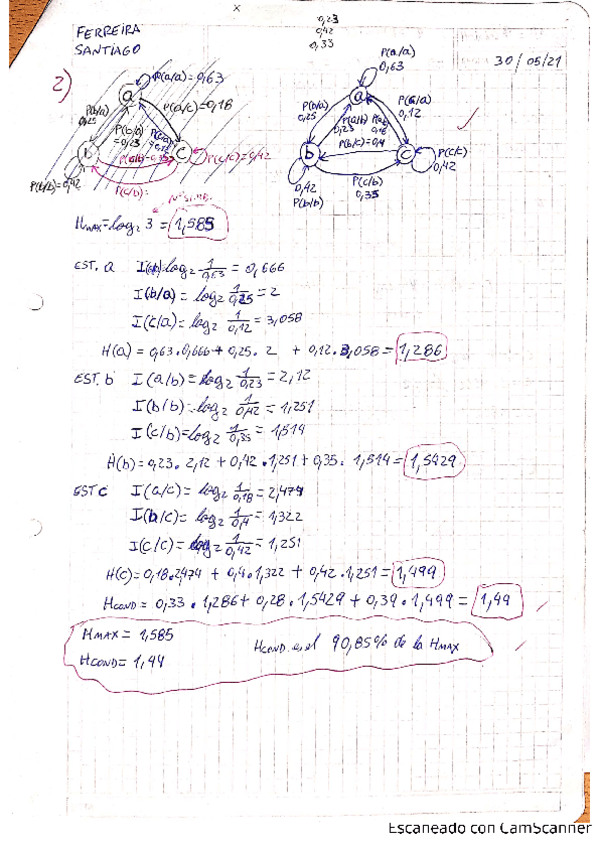 x
FERREIRA
SANTIAGO
0,23
0,42
0,33
30/05/21
2)
P(a/a)=0,63
P(a/c)=0,18
P(b/a)
0,25
P(a/b)
=0,23
P(c/c)=0,42
P(b/b)=0,42
P(c/b)=
a
b
c
P(a/a)
0,63
P(b/a)
0,25
P(a/b)
0,23
0,18
0,12
P(b/c)=0,4
P(c/c)
0,42
0,42
P(b/b)
P(c/b)
0,35
HMAX=log2 3 = 1,585
EST. a
log2 1/0,63 = 0,666
I(b/a) = log2 1/0,25 = 2
I(c/a) = log2 1/0,12 = 3,058
H(a) = 0,63.0,666 + 0,25. 2 + 0,12.3,058 = 1,286
EST. b I(a/b) = log2 1/0,23 = 2,12
I(b/b) = log2 1/0,42 = 1,251
I(c/b)=log2 1/0,35 = 1,514
H(b) = 0,23. 2,12 + 0,42.1,251 + 0,35. 1,514 = 1,5429
EST c I(a/c) = log2 1/0,18 = 2,474
I(b/c) = log2 1/0,4 = 1,322
I(c/c) = log2 1/0,42 = 1,251
H(c) = 0,18.2474 + 0,4.1,322 + 0,42.1,251 = 1,499
HCOND = 0,33 . 1,286 + 0,28 . 1,5429 + 0,39 . 1,499 = 1,44
HMAX = 1,585
HCOND = 1,44
HCOND. es el 90,85% de la HMAX
Escaneado con CamScanner